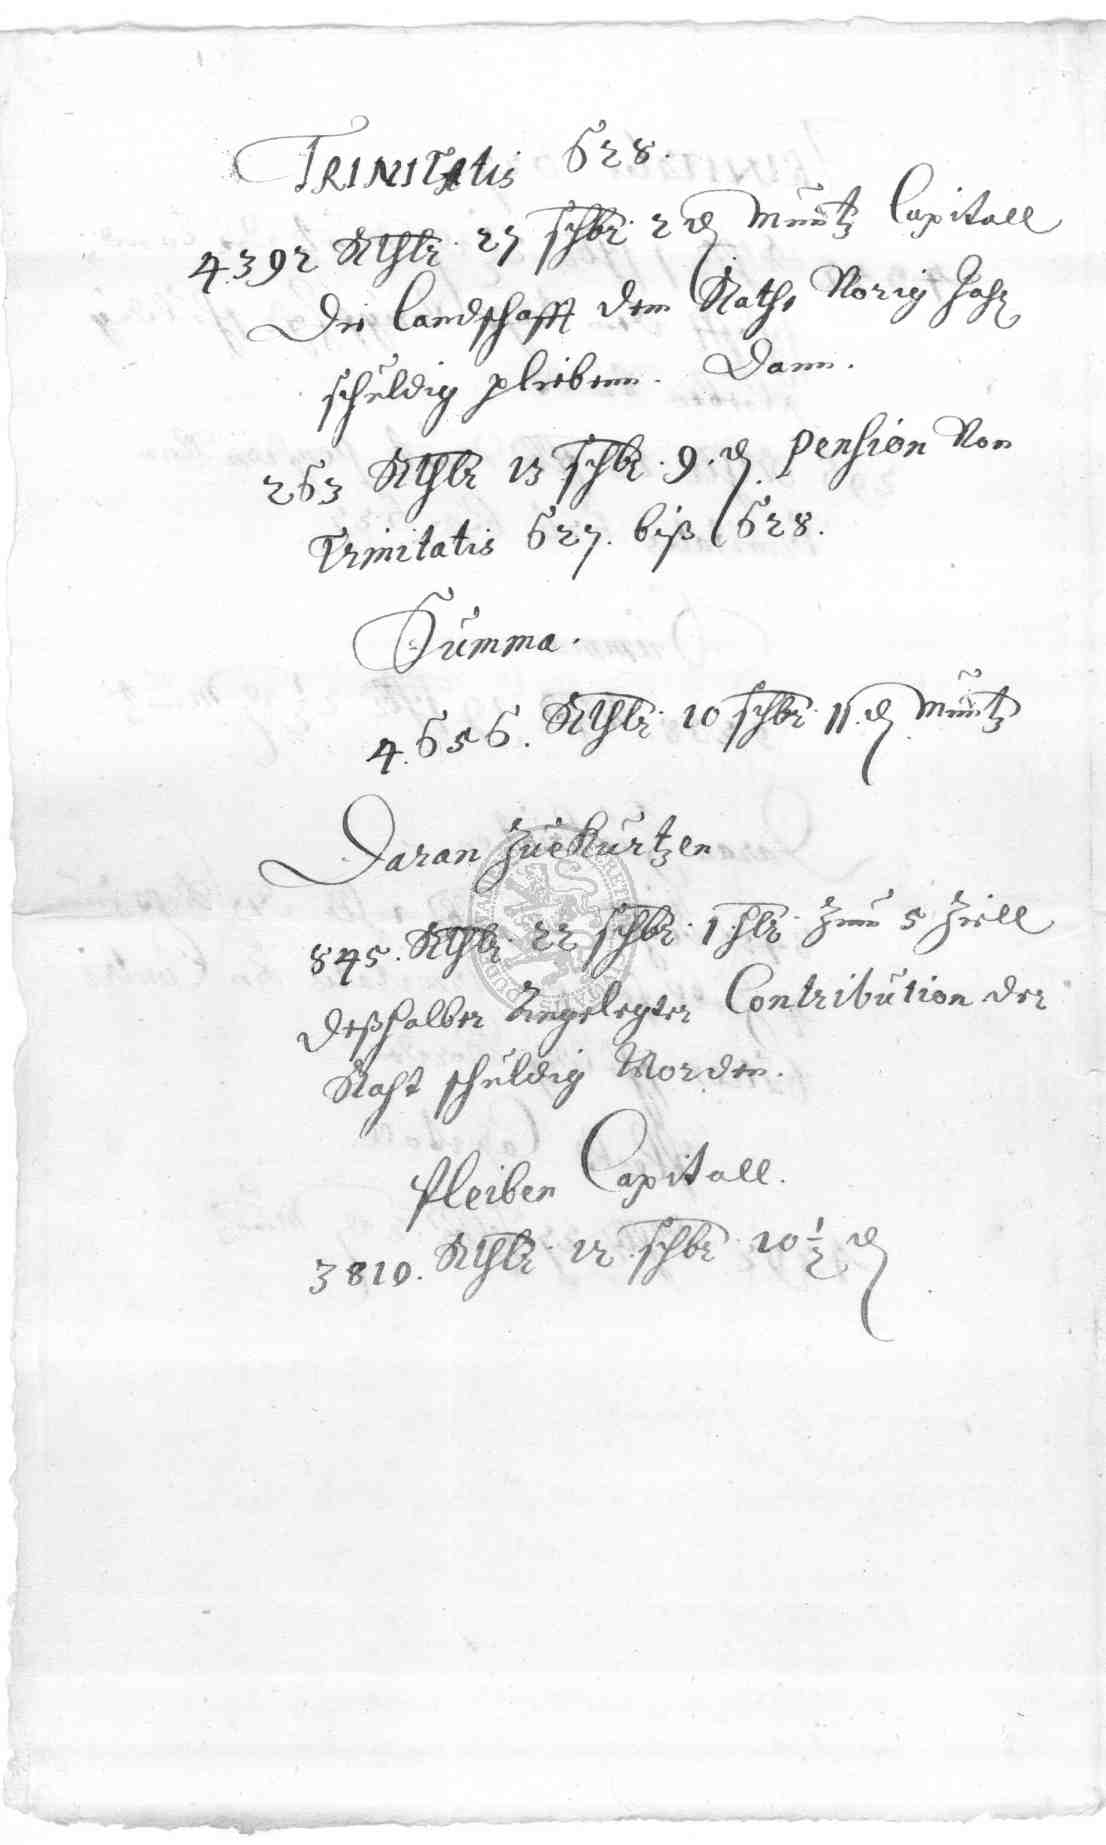 TRINITAtis 628.
4392 Rthlr. 27 schlr. 2 d Müntz Capitall
Die Landschafft dem Raths Vorig Jahr
schuldig plieben. Dann.
263 Rthlr 13 schlr. 9. d. pension Von
Trinitatis 627. biß 628.
Summa.
4.656. Rthlr. 10 schlr. 11. d. Müntz
Daran zue Kürtzen
845. Rthlr. 22 schlr. 1 hlr. Zum 5 Ziell
deßhalber Angelegter Contribution der
Raht schuldig Worden.
Pleiben Capitall.
3810. Rthlr. 12. schlr. 10 1/2 d